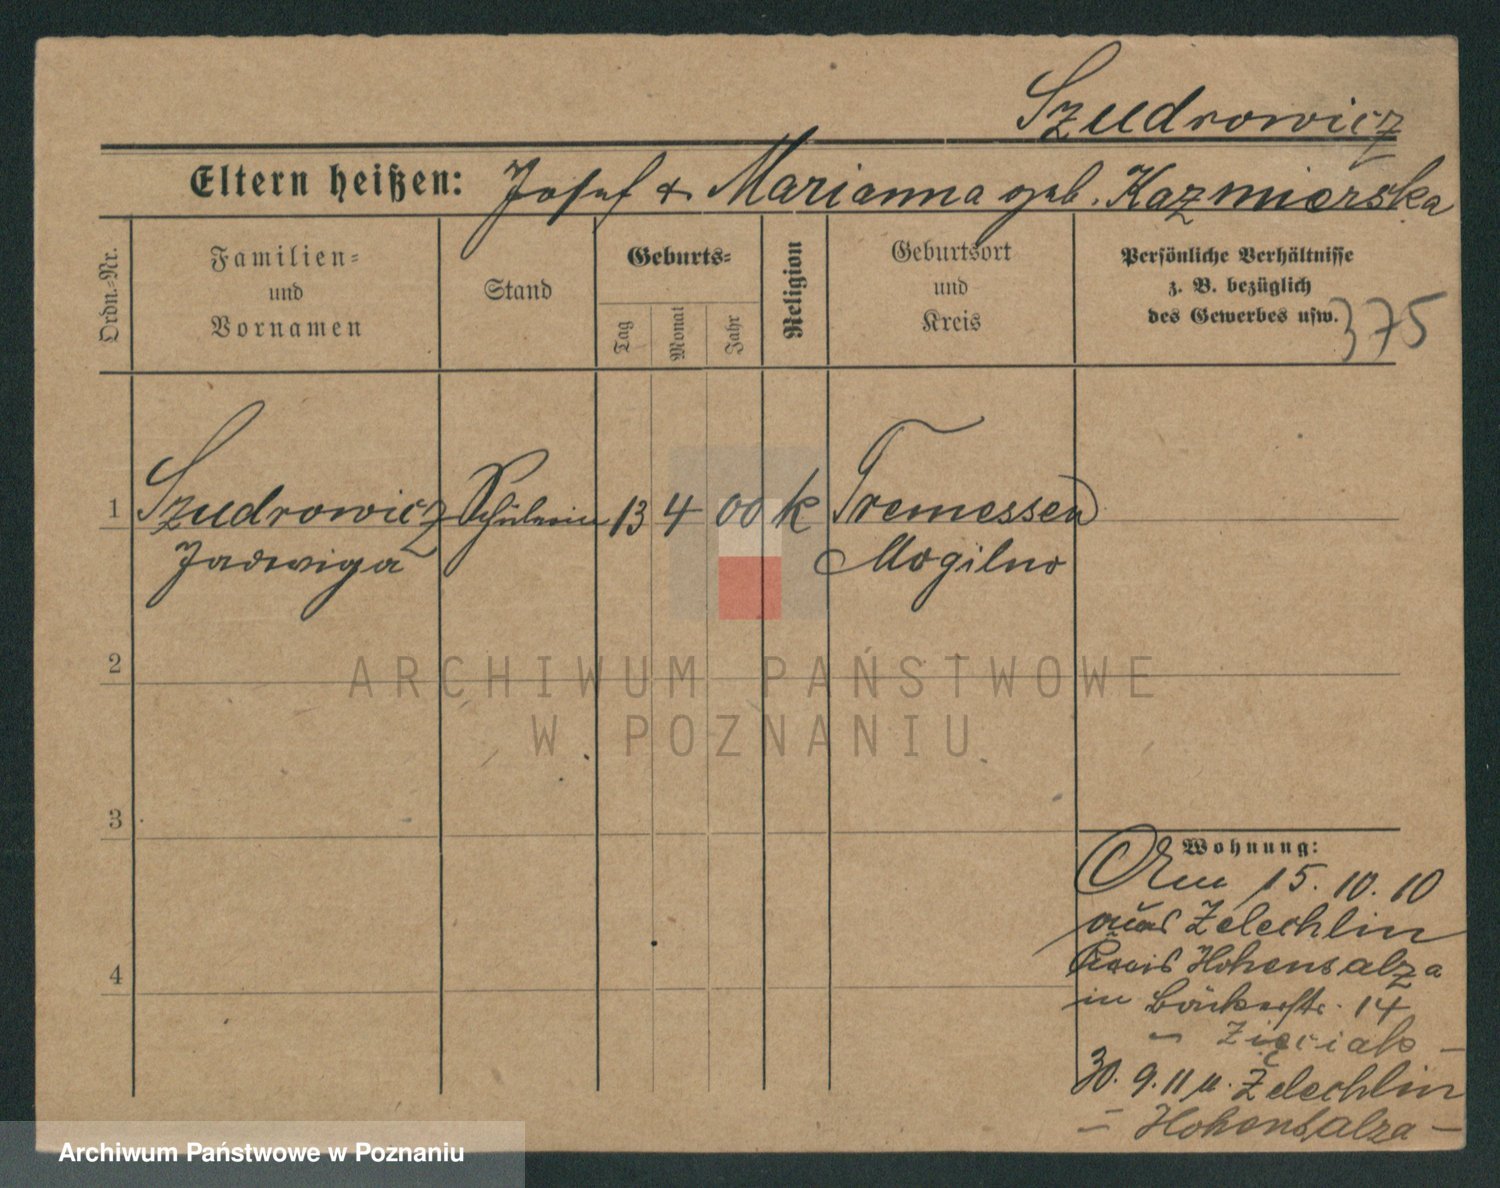 Szudrowicz
Eltern heißen: Josef & Marianna geb. Kazmierska
Ordn.-Nr.
Familien-
und
Vornamen
Stand
Geburts-
Tag
Monat
Jahr
Religion
Geburtsort
und
Kreis
Persönliche Verhältnisse
z. B. bezüglich
des Gewerbes usw.
375
1 Szudrowicz Schülerin 13 4 00 k Tremessen
Jadwiga Mogilno
2
ARCHIWUM PAŃSTWOWE
W POZNANIU
3
Wohnung:
Am 15. 10. 10
aus Zelechlin
Kreis Hohensalza
in Bäckerstr. 14
– Zięciak –
4
30. 9. 11 n. Zelechlin
– Hohensalza –
Archiwum Państwowe w Poznaniu